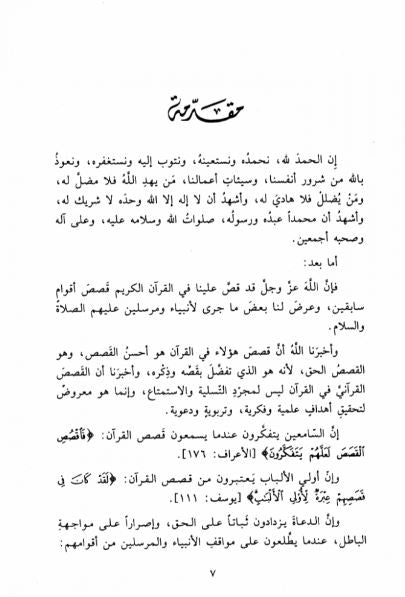 مقدمة
إن الحمدَ لله، نحمدُه ونستعينهُ، ونتوب إليه ونستغفره، ونعوذُ
بالله من شرور أنفسنا، وسيئاتِ أعمالنا، مَن يهدِ اللَّهُ فلا مضلَّ له،
ومَنْ يُضللْ فلا هاديَ له، وأشهدُ أن لا إله إلا الله وحدَه لا شريك له،
وأشهدُ أن محمداً عبدُه ورسولُه، صلواتُ الله وسلامه عليه، وعلى آله
وصحبه أجمعين.
أما بعد:
فإنَّ اللَّهَ عزَّ وجلَّ قد قصَّ علينا في القرآن الكريم قَصصَ أقوامٍ
سابقين، وعرضَ لنا بعضَ ما جرى لأنبياء ومرسلين عليهم الصلاةُ
والسلام.
وأخبرَنا اللَّهُ أنَّ قَصصَ هؤلاء في القرآن هو أحسنُ القَصص، وهو
القصصُ الحق، لأنه هو الذي تفضَّلَ بقَصِّه وذِكْرِه، وأخبرَنا أن القَصصَ
القرآنيَّ في القرآن ليس لمجرّدِ التَّسلية والاستمتاع، وإنما هو معروضٌ
لتحقيقِ أهدافٍ علمية وفكرية، وتربويةٍ ودعوية.
إنَّ السامعين يتفكّرون عندما يسمعون قَصصَ القرآن: ﴿فَٱقْصُصِ
ٱلْقَصَصَ لَعَلَّهُمْ يَتَفَكَّرُونَ﴾ [الأعراف: ١٧٦].
وإنَّ أولي الألباب يَعتبرون من قصص القرآن: ﴿لَقَدْ كَانَ فِي
قَصَصِهِمْ عِبْرَةٌ لِّأُوْلِي ٱلْأَلْبَٰبِ﴾ [يوسف: ١١١].
وإنَّ الدعاةَ يزدادون ثَباتاً على الحق، وإصراراً على مواجهةِ
الباطل، عندما يطَّلعون على مواقفِ الأنبياء والمرسلين من أقوامهم:
٧